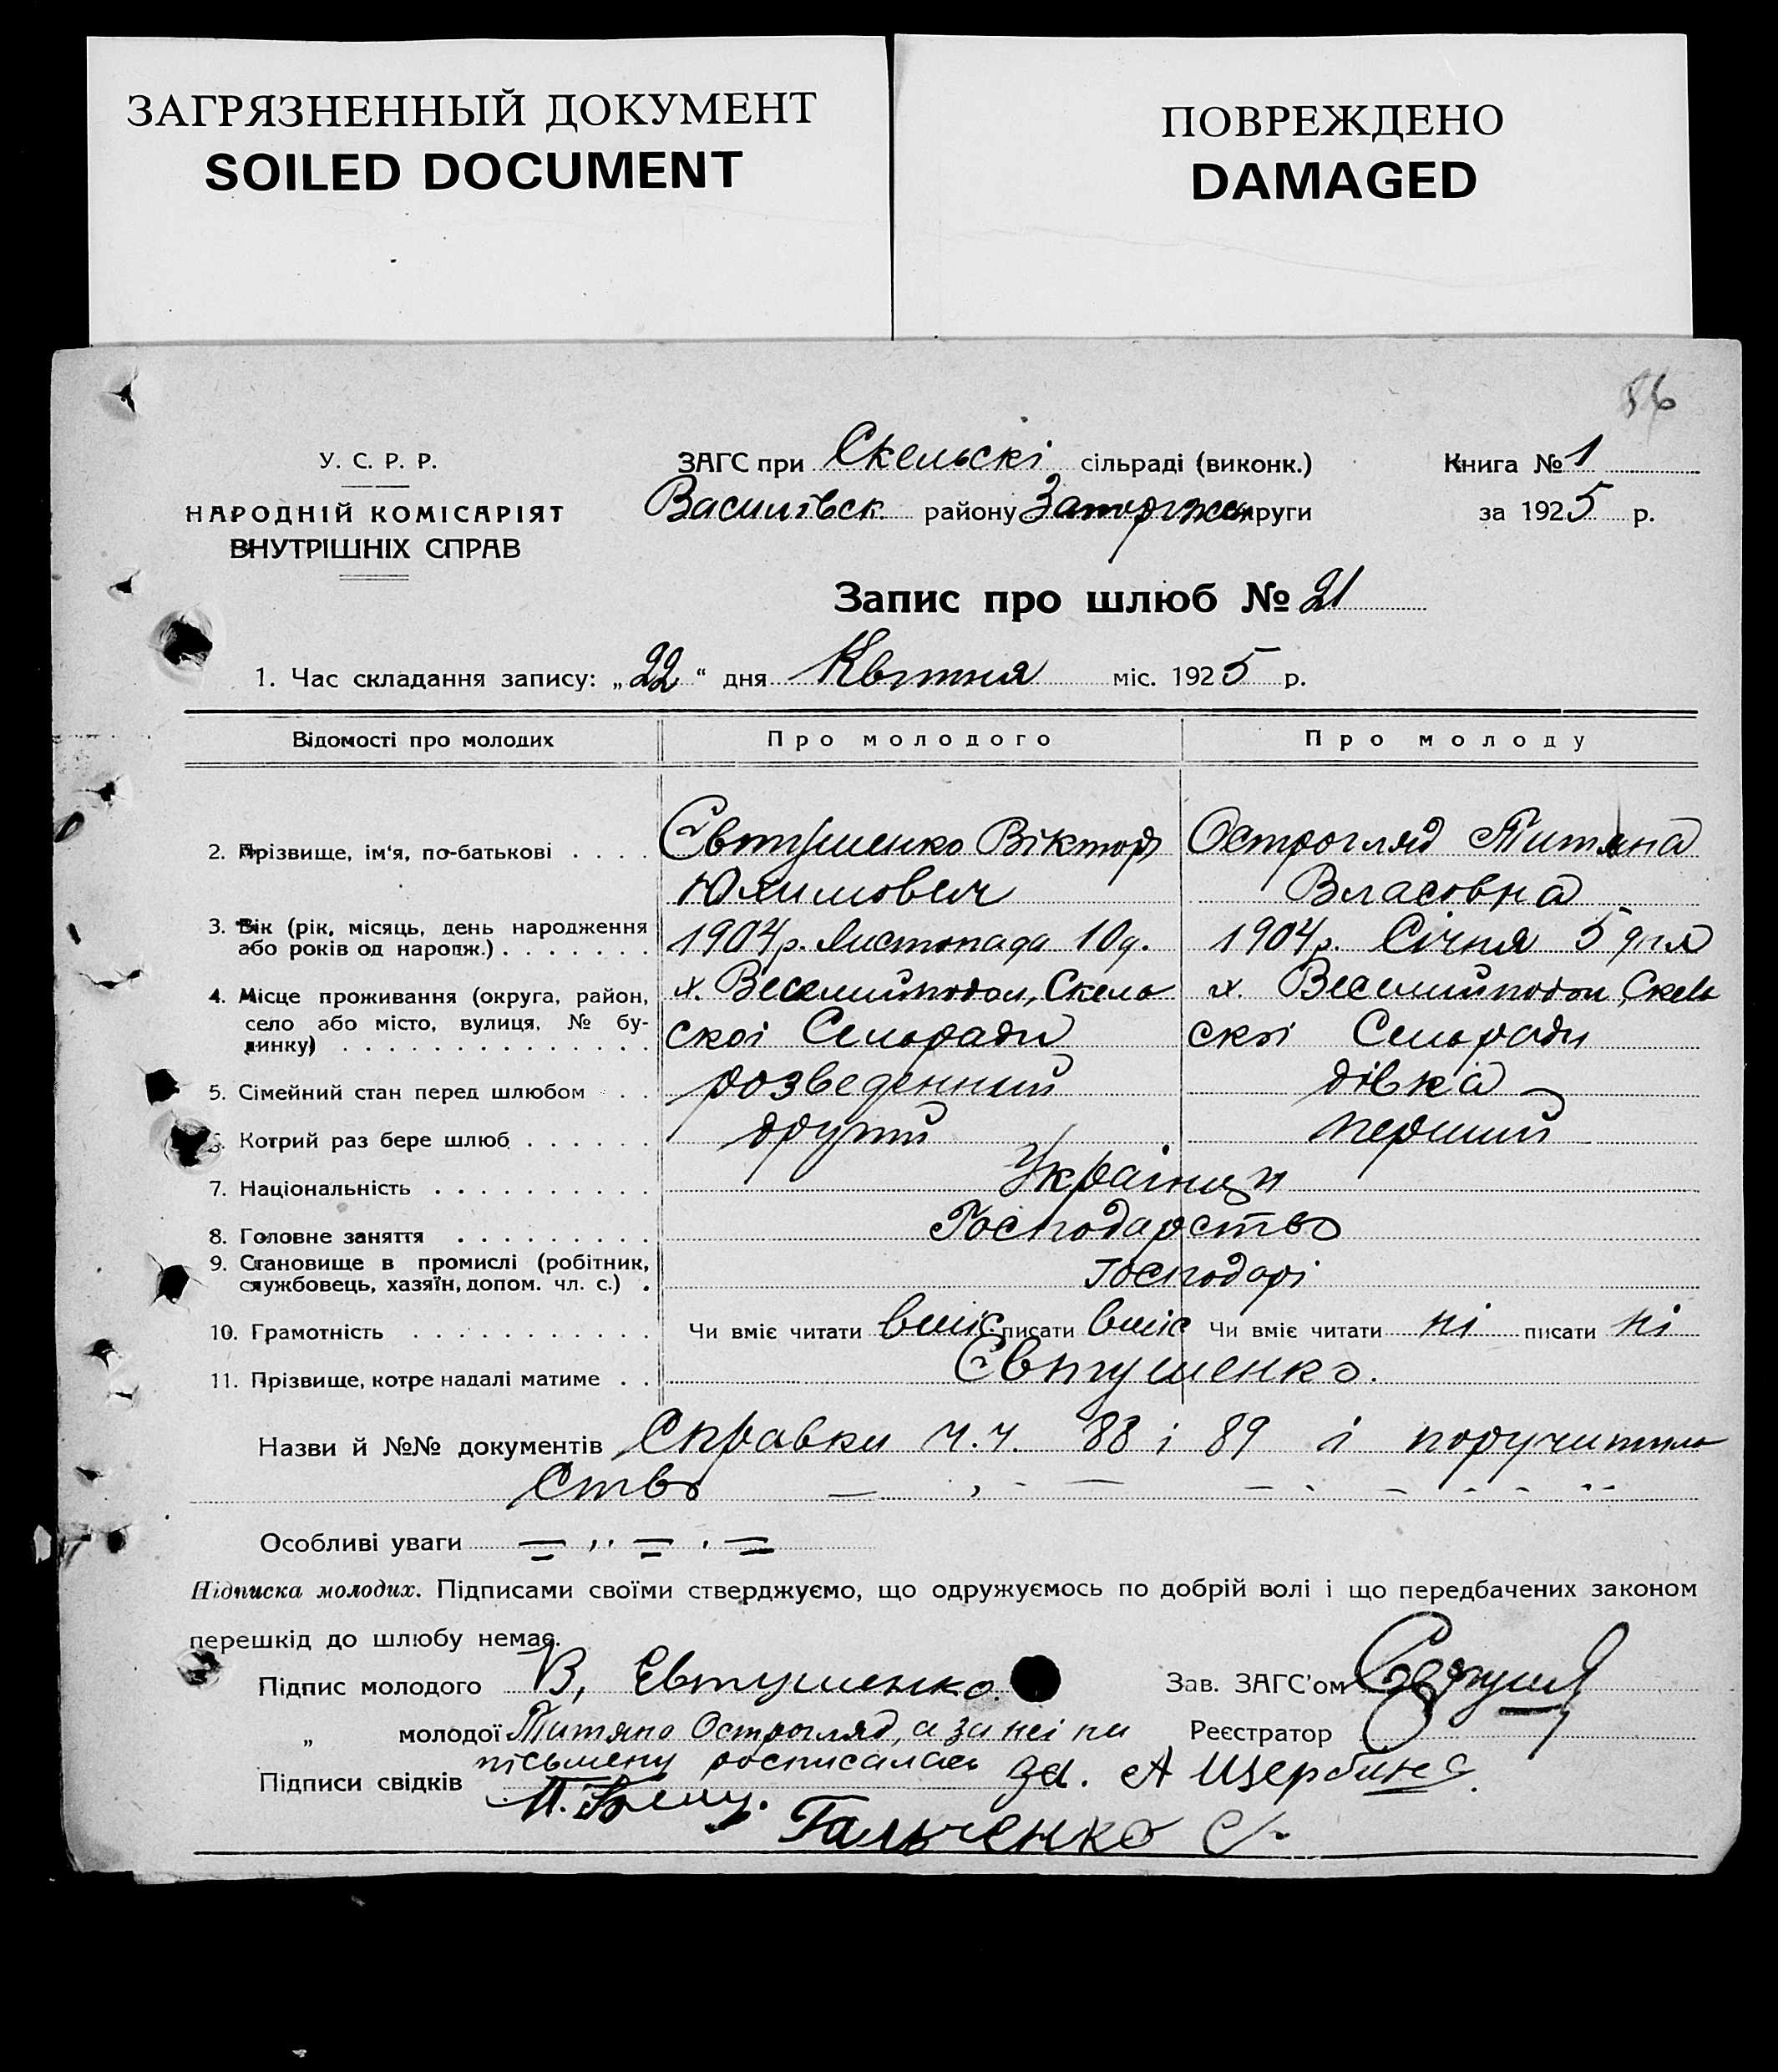 ЗАГРЯЗНЕННЫЙ ДОКУМЕНТ
SOILED DOCUMENT
ПОВРЕЖДЕНО
DAMAGED
56
У. С. Р. Р.
НАРОДНІЙ КОМІСАРІЯТ
ВНУТРІШНІХ СПРАВ
ЗАГС при Скельскі сільраді (виконк.)
Василівск району Запоріжск округи
Книга № 1
за 1925 р.
Запис про шлюб № 21
1. Час складання запису: „22“ дня Квітня міс. 1925 р.
Відомості про молодих Про молодого Про молоду
2. Прізвище, ім'я, по-батькові . . . . Євтушенко Віктор Остроглляд Титяна
Юхимович Власовна
3. Вік (рік, місяць, день народження 1904 р. Листопада 10 д. 1904 р. Січня 5 дня
або років од народж.) . . . . . . .
4. Місце проживання (округа, район, х. Веселийподол, Скель х. Веселийподол, Скель
село або місто, вулиця, № бу- скоі Сельради скоі Сельради
динку) . . . . . . . . . . . . . .
5. Сімейний стан перед шлюбом . . . розведенний дівка
6. Котрий раз бере шлюб . . . . . . другий перший
7. Національність . . . . . . . . . . Українци
8. Головне заняття . . . . . . . . . Господарство
9. Становище в промислі (робітник, Господарі
службовець, хазяїн, допом. чл. с.) .
10. Грамотність . . . . . . . . . . . Чи вміє читати вміє писати вміє Чи вміє читати ні писати ні
11. Прізвище, котре надалі матиме . . Євтушенко.
Назви й №№ документів Справки ч.ч. 88 і 89 і поручитель
ство
Особливі уваги
Підписка молодих. Підписами своїми стверджуємо, що одружуємось по добрій волі і що передбачених законом
перешкід до шлюбу немає.
Підпис молодого В, Евтушенко. Зав. ЗАГС'ом
„ молодої Титяна Остроглляд, а за неі ни Реєстратор
Підписи свідків пісьмену росписалась А Щербина
Гальченко С.